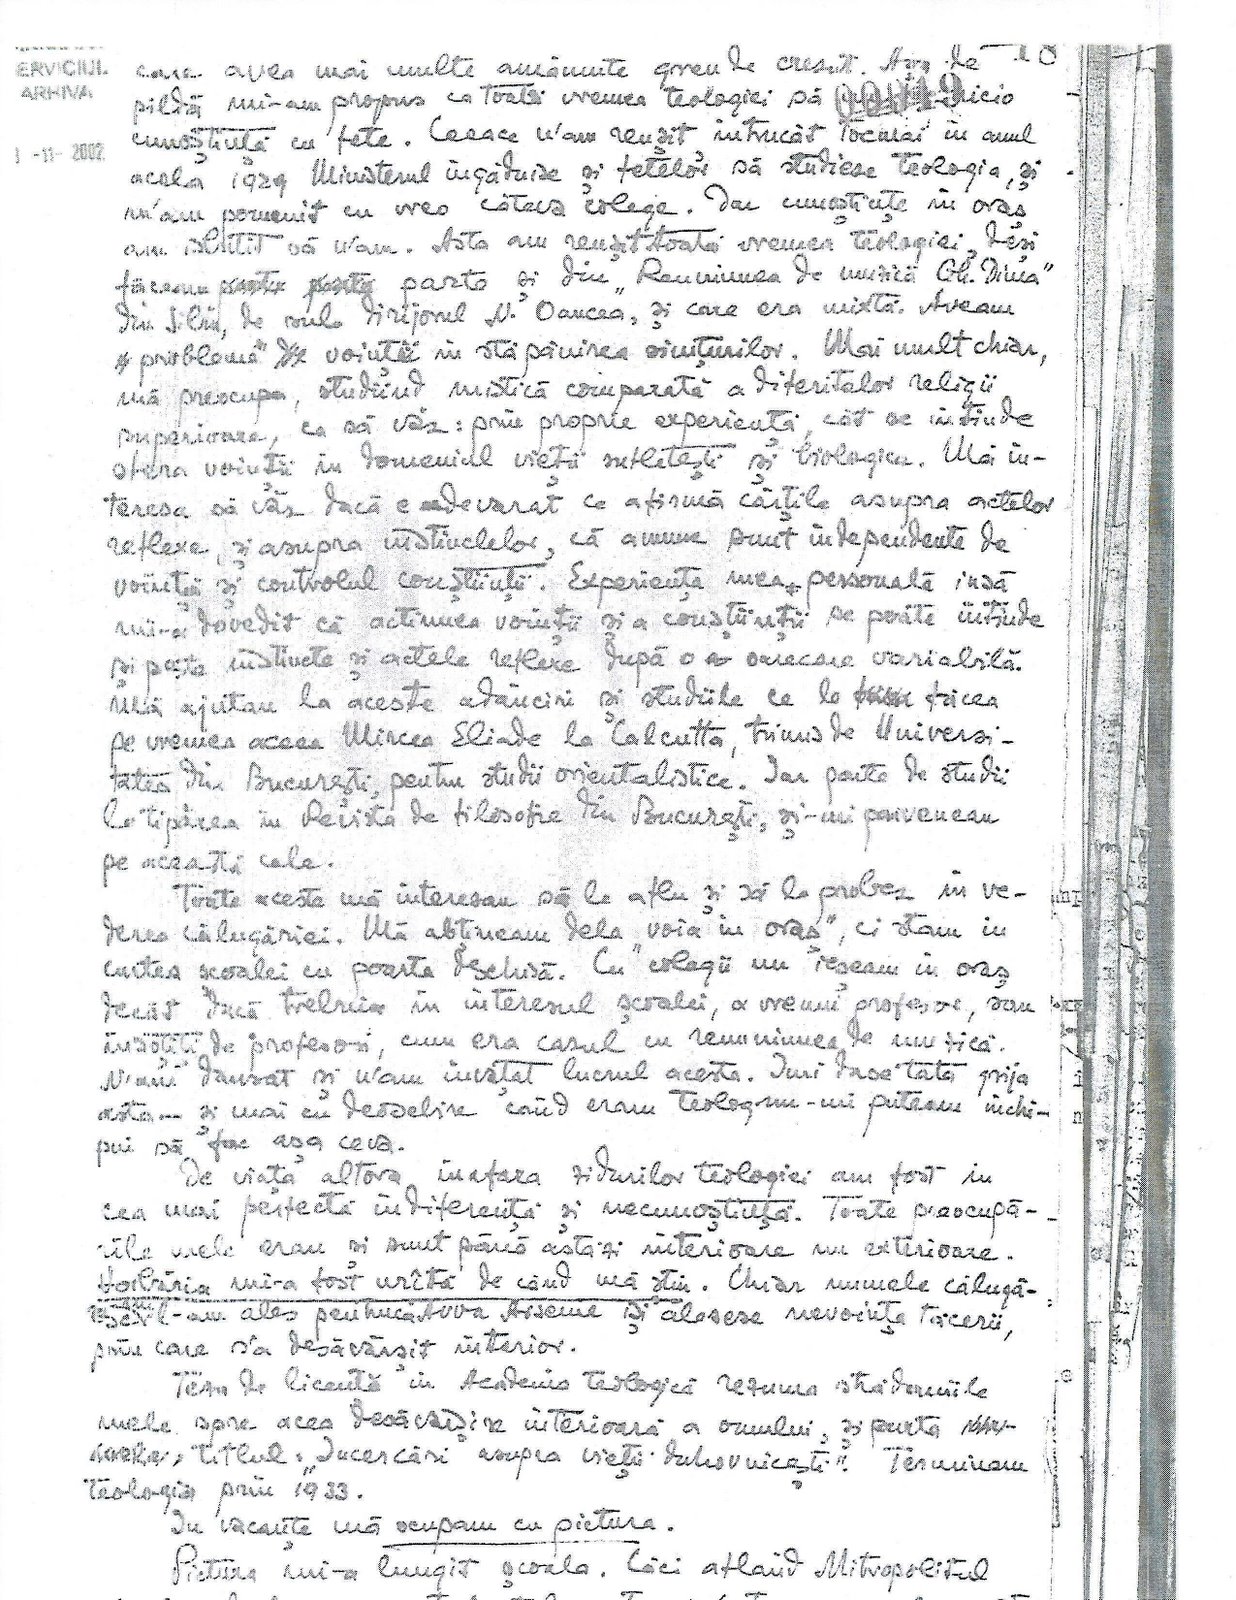 18
ERVICIUL
ARHIVA
-11- 2002
care avea mai multe amănunte greu de crezut. Așa de
pildă mi-am propus ca toată vremea teologiei să nicio
cunoștiuță cu fete. Ceeace n'am reușit întrucât tocmai în anul
acela 1929 Ministerul îngăduise și fetelor să studieze teologia, și
m'am pomenit cu vreo câteva colege. Dar cunoștiințe în oraș
am isbutit să n'am. Asta am reușit toată vremea teologiei, deși
făceam parte și din „Reuniunea de muzică Gh. Dima"
din Sibiu, de sub dirijorul N. Oancea, și care era mixtă. Aveam
„problema" voinții în stăpânirea simțurilor. Mai mult chiar,
mă preocupa, studiind mistica comparată a diferitelor religii
superioare, ca să văz: prin proprie experiență, cât se întinde
sfera voinții în domeniul vieții sufletești și biologice. Mă in-
teresa să văz dacă e adevarat ce afirmă cărțile asupra actelor
reflexe, și asupra instinctelor, că anume sunt independente de
voință și controlul conștiinții. Experiența mea personală însă
mi-a dovedit că actiunea voinții și a conștiinții se poate întinde
și peste instincte și actele reflexe după o oarecare variabilă.
Mă ajutau la aceste adânciri și studiile ce le făcea
pe vremea aceea Mircea Eliade la Calcutta, trimis de Universi-
tatea din București, pentru studii orientalistice. Iar parte de studii
le tipărea în Revista de filosofie din București, și-mi parveneau
pe această cale.
Toate aceste mă interesau să le aflu și să le probez în ve-
derea călugăriei. Mă abțineam dela „voia în oraș", ci stam în
curtea școalei cu poarta deschisă. Cu colegii nu ieșeam în oraș
decât dacă trebuia în interesul școalei, a vreunui profesor, sau
însoțiți de profesori, cum era cazul cu reuniunea de muzică.
N'am dansat și n'am învățat lucrul acesta. Imi dase tata grija
asta — și mai cu deosebire când eram teolog nu-mi puteam închi-
pui să fac așa ceva.
De viața altora înafara zidurilor teologiei am fost în
cea mai perfectă indiferență și necunoștiuță. Toate preocupă-
rile mele erau și sunt până astăzi interioare nu exterioare.
Vorbăria mi-a fost urîtă de când mă știu. Chiar numele călugă-
resc l-am ales pentrucă Avva Arsenie își alesese nevoința tăcerii,
prin care s'a desăvârșit interior.
Teza de licență în Academia teologică rezuma strădaniile
mele spre acea desăvârșire interioară a omului, și purta
titlul: „Incercări asupra vieții duhovnicești". Terminam
teologia prin 1933.
In vacanțe mă ocupam cu pictura.
Pictura mi-a lungit școala. Căci aflând Mitropolitul